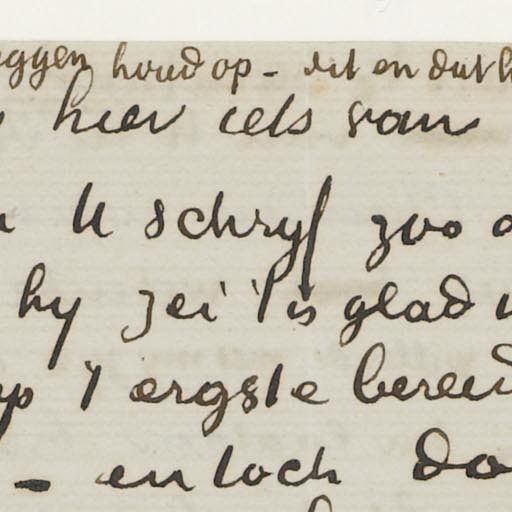 eggen houd op – dit en dat h
hier iets van
U schryf zoo
hy zei 't is glad
op 't ergste bereid
– en toch do